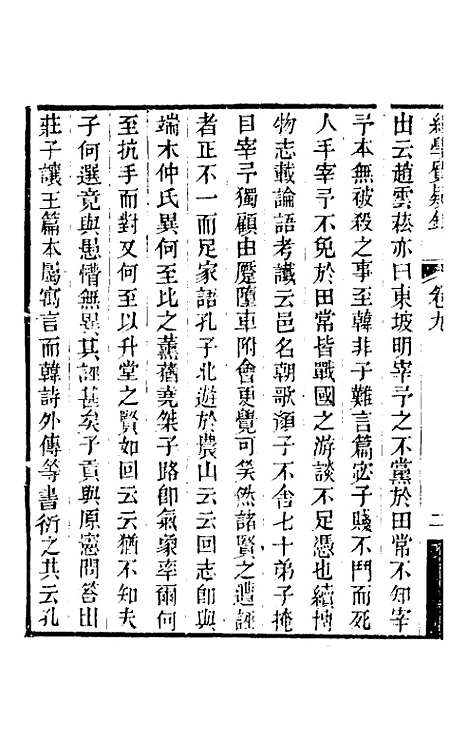 經學質疑錄 卷九 二
出云趙雲菘亦曰東坡明宰予之不黨於田常不知宰
予本無被殺之事至韓非子難言篇宓子賤不鬥而死
人手宰予不免於田常皆戰國之游談不足憑也續博
物志載論語考讖云邑名朝歌顏子不舍七十弟子掩
目宰予獨顧由蹙墮車附會更覺可笑然諸賢之遭誣
者正不一而足家語孔子北遊於農山云云回志卽與
端木仲氏異何至比之薰蕕堯桀子路卽氣象率爾何
至抗手而對又何至以升堂之賢如回云云猶不知夫
子何選竟與愚懵無異其誣甚矣子貢與原憲問答田
莊子讓王篇本屬寓言而韓詩外傳等書衍之其云孔